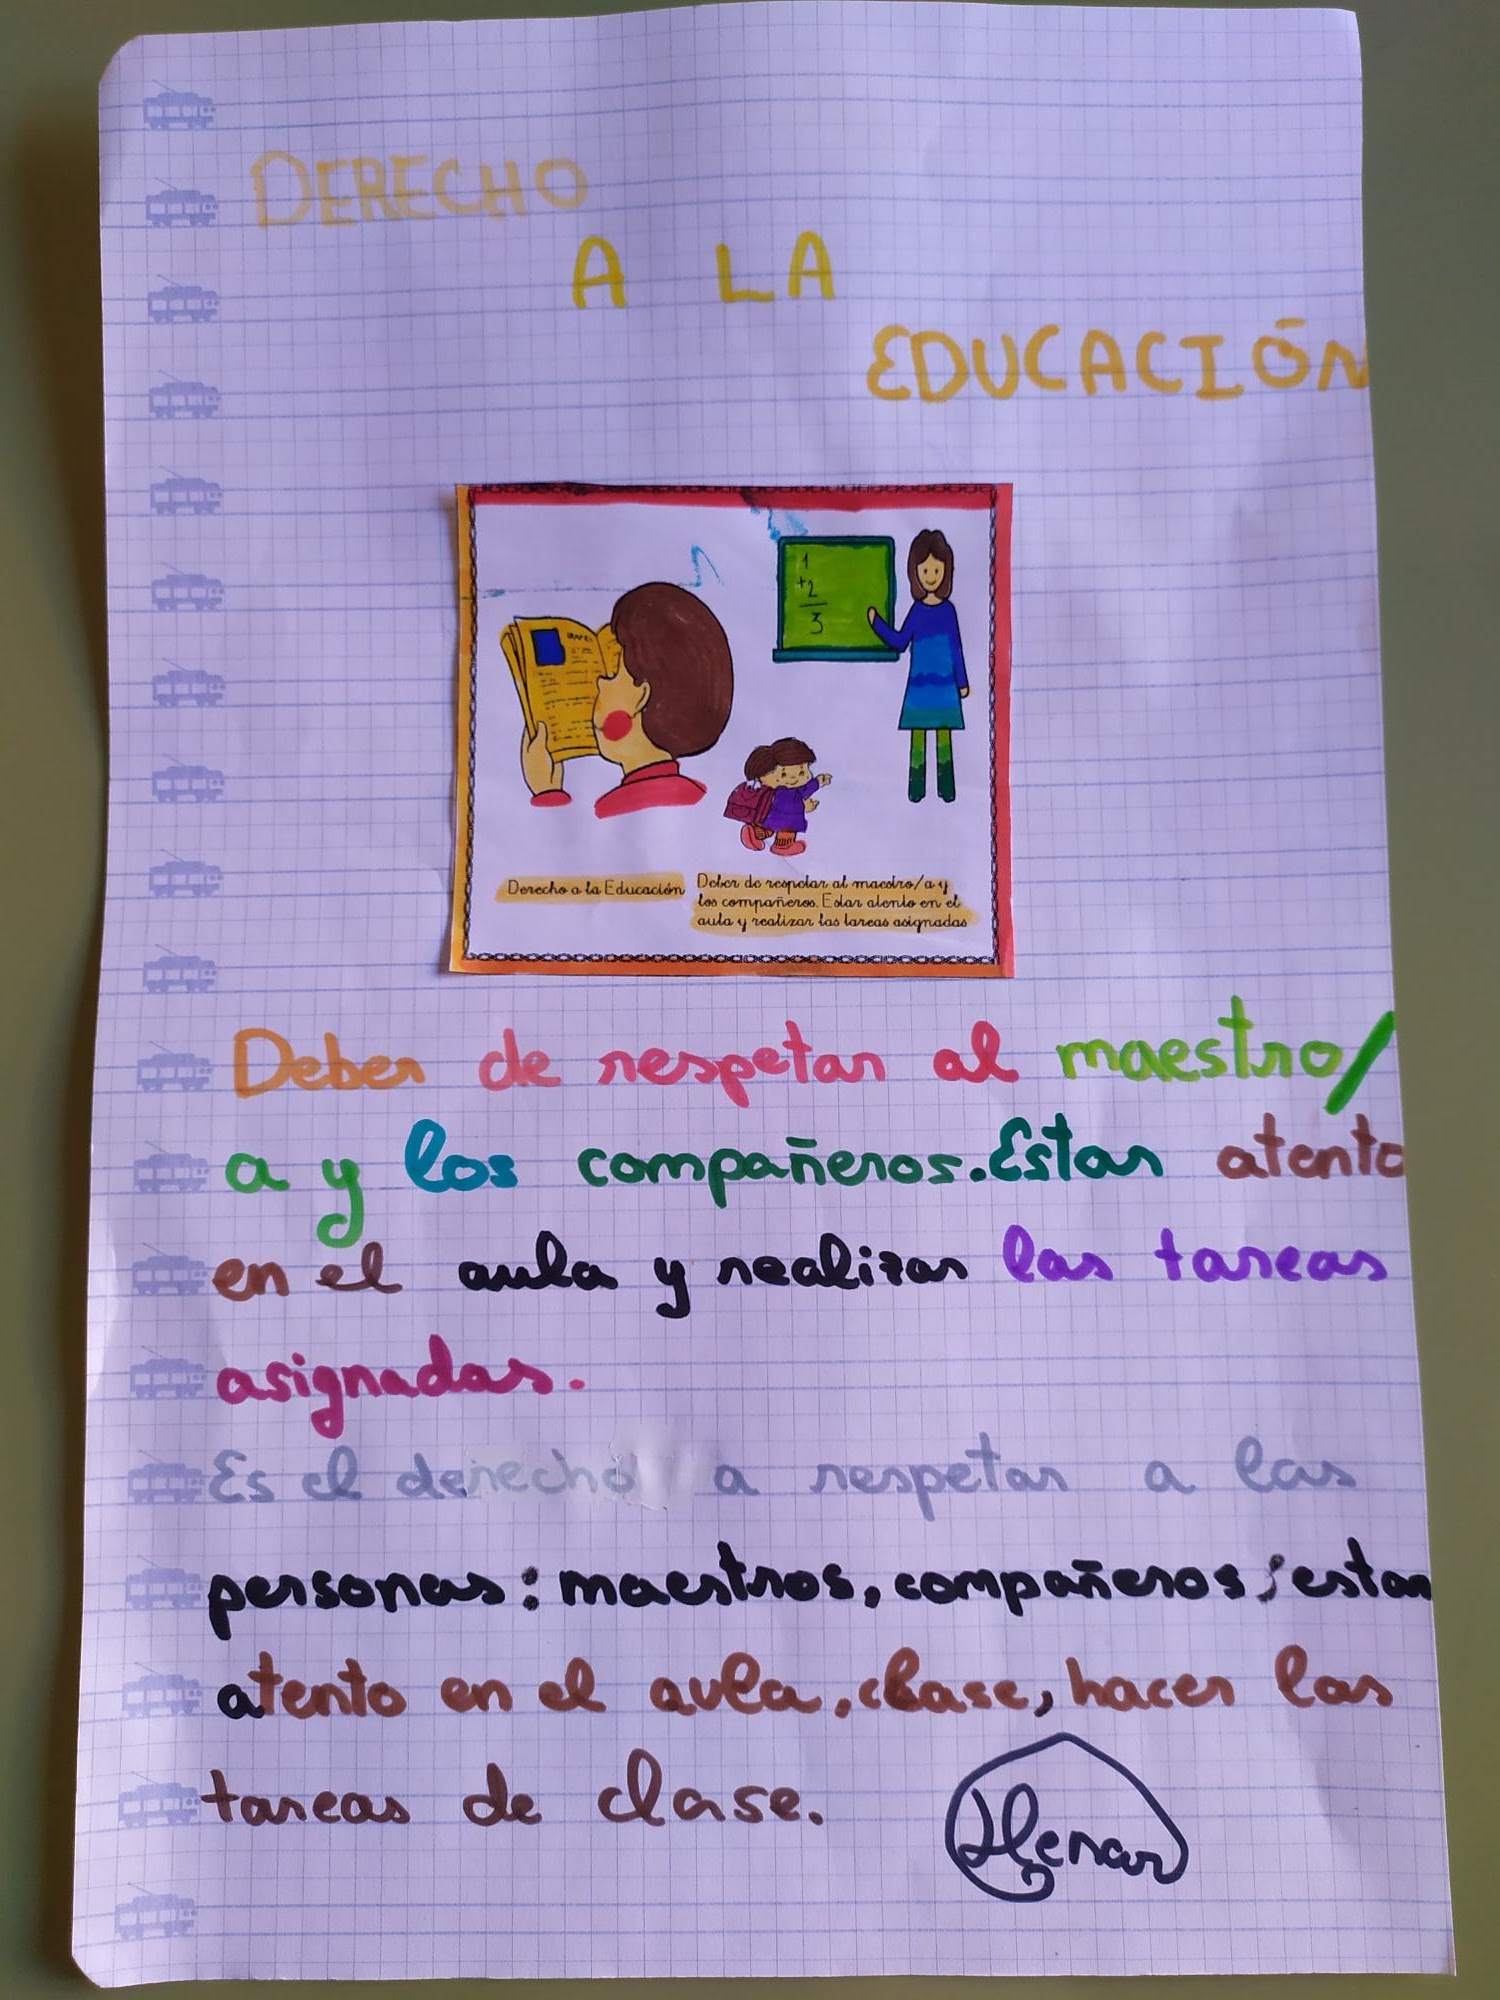 DERECHO
A LA
EDUCACIÓN
1
+2
3
Derecho a la Educación
Deber de respetar al maestro/a y
los compañeros. Estar atento en el
aula y realizar las tareas asignadas
Deber de respetar al maestro/
a y los compañeros. Estar atento
en el aula y realizar las tareas
asignadas.
Es el derecho a respetar a las
personas: maestros, compañeros; estar
atento en el aula, clase, hacer las
tareas de clase.
Henar